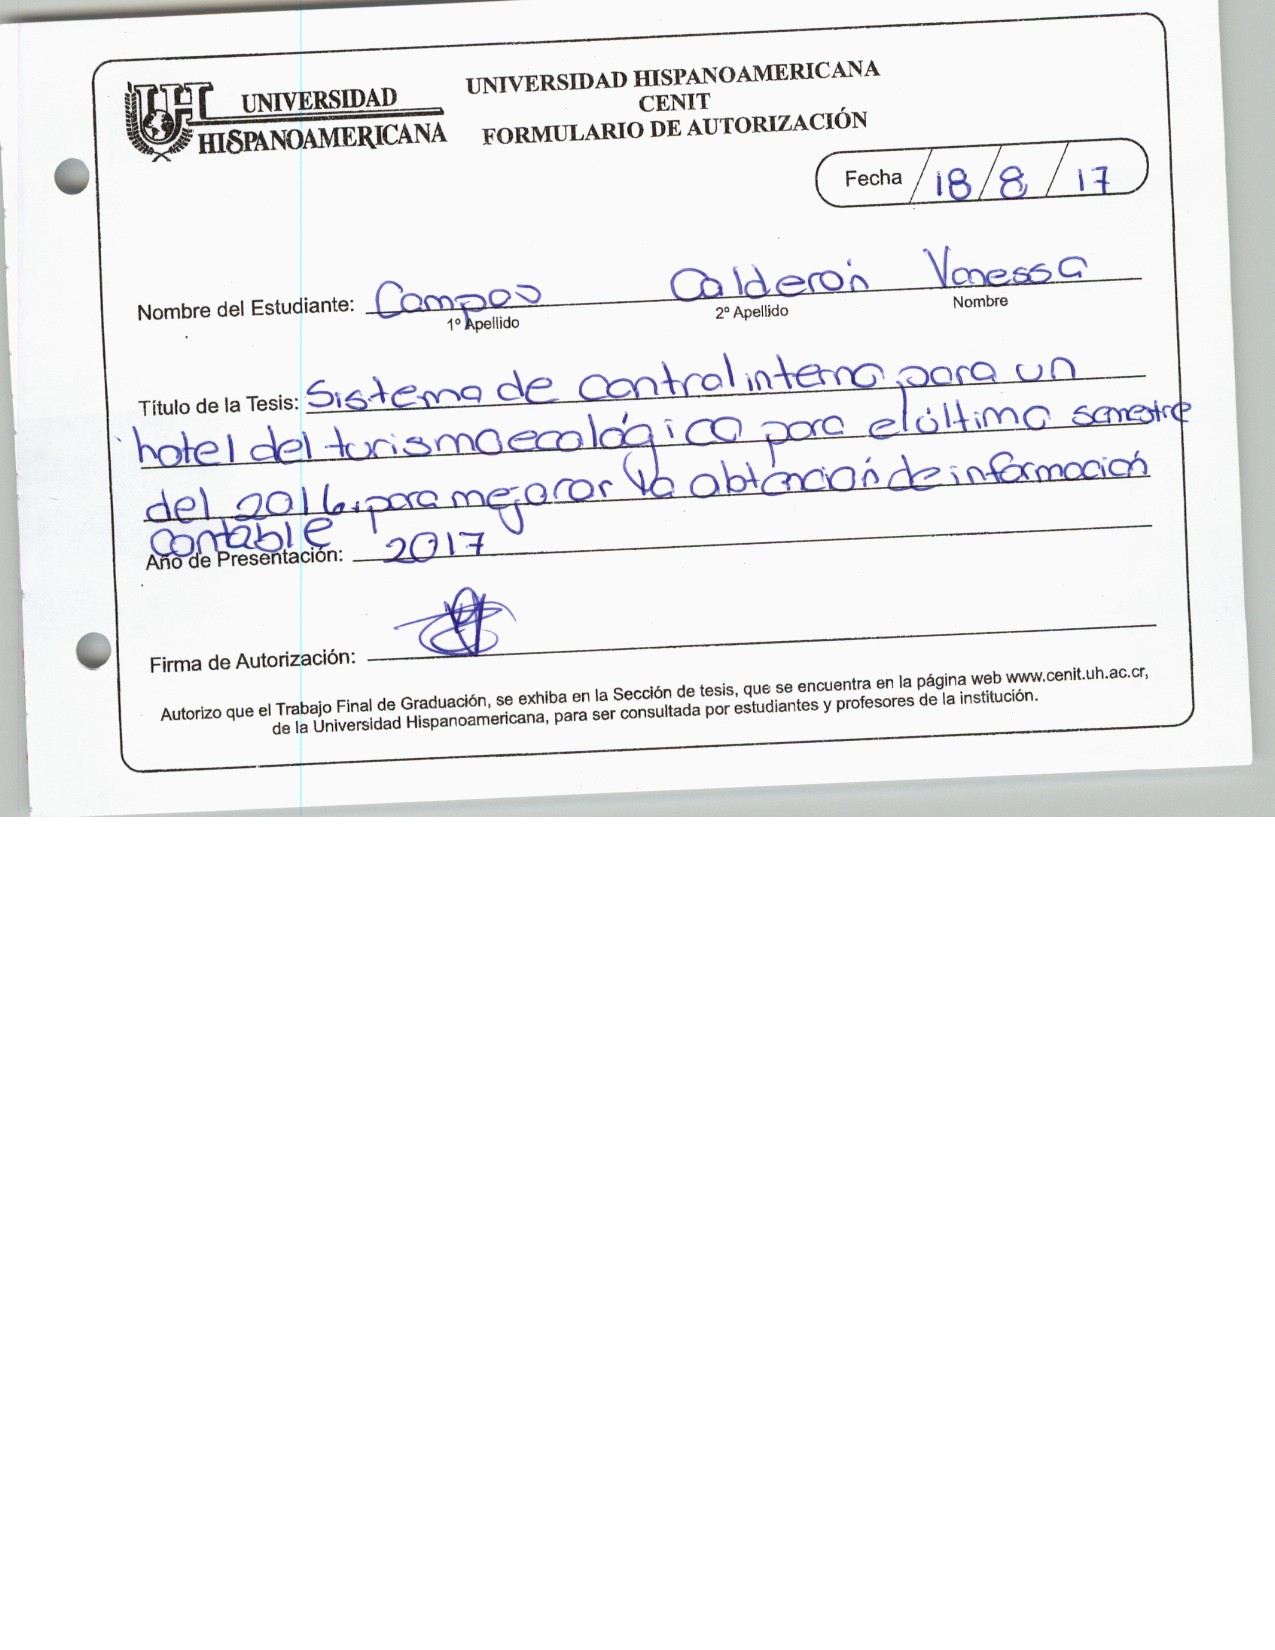 UNIVERSIDAD
HISPANOAMERICANA
UNIVERSIDAD HISPANOAMERICANA
CENIT
FORMULARIO DE AUTORIZACIÓN
Fecha / 18 / 8 / 17
Nombre del Estudiante: Campos Calderón Vanessa
1º Apellido 2º Apellido Nombre
Título de la Tesis: Sistema de control interno para un
hotel del turismo ecológico para el último semestre
del 2016, para mejorar la obtención de información
contable
Año de Presentación: 2017
Firma de Autorización:
Autorizo que el Trabajo Final de Graduación, se exhiba en la Sección de tesis, que se encuentra en la página web www.cenit.uh.ac.cr,
de la Universidad Hispanoamericana, para ser consultada por estudiantes y profesores de la institución.